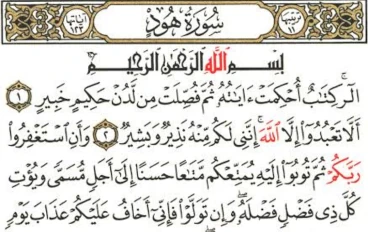 ترتيبها ١١ سُورَةُ هُودٍ آياتها ١٢٣
بِسْمِ اللَّهِ الرَّحْمَٰنِ الرَّحِيمِ
الٓر ۚ كِتَٰبٌ أُحْكِمَتْ ءَايَٰتُهُۥ ثُمَّ فُصِّلَتْ مِن لَّدُنْ حَكِيمٍ خَبِيرٍ ١
أَلَّا تَعْبُدُوٓا۟ إِلَّا اللَّهَ ۚ إِنَّنِى لَكُم مِّنْهُ نَذِيرٌ وَبَشِيرٌ ٢ وَأَنِ اسْتَغْفِرُوا۟
رَبَّكُمْ ثُمَّ تُوبُوٓا۟ إِلَيْهِ يُمَتِّعْكُم مَّتَٰعًا حَسَنًا إِلَىٰٓ أَجَلٍ مُّسَمًّى وَيُؤْتِ
كُلَّ ذِى فَضْلٍ فَضْلَهُۥ ۖ وَإِن تَوَلَّوْا۟ فَإِنِّىٓ أَخَافُ عَلَيْكُمْ عَذَابَ يَوْمٍ